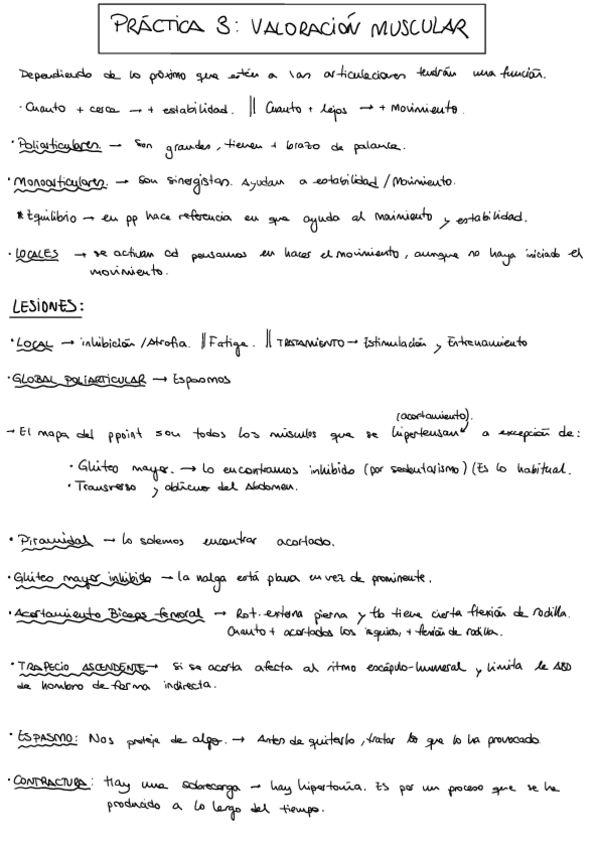 PRÁCTICA 3: VALORACIÓN MUSCULAR
Dependiendo de lo próximo que estén a las articulaciones tendrán una función.
· Cuanto + cerca → + estabilidad. || Cuanto + lejos → + Movimiento.
· Poliarticulares. → Son grandes, tienen + brazo de palanca.
· Monoarticulares. → Son sinergistas. Ayudan a estabilidad / Movimiento.
* Equilibrio → en pp hace referencia en que ayuda al movimiento y estabilidad.
· LOCALES → se activan cd pensamos en hacer el movimiento, aunque no haya iniciado el
movimiento.
LESIONES:
· LOCAL → inhibición / Atrofia. || Fatiga. || TRATAMIENTO → Estimulación y Entrenamiento
· GLOBAL POLIARTICULAR → Espasmos
(acortamiento).
→ El mapa del ppoint son todos los músculos que se hipertensan a excepción de:
· Glúteo mayor. → lo encontramos inhibido (por sedentarismo) (Es lo habitual.
· Transverso y oblicuo del Abdomen.
· Piramidal → lo solemos encontrar acortado.
· Glúteo mayor inhibido → la nalga está plana en vez de prominente.
· Acortamiento Bíceps femoral → Rot. externa pierna y tb tiene cierta flexión de rodilla.
Cuanto + acortados los isquios, + flexión de rodilla.
· TRAPECIO ASCENDENTE → Si se acorta afecta al ritmo escápulo-humeral y limita la ABD
de hombro de forma indirecta.
· ESPASMO: Nos proteje de algo. → Antes de quitarlo, tratar lo que lo ha provocado
· CONTRACTURA: Hay una sobrecarga → hay hipertonía. Es por un proceso que se ha
producido a lo largo del tiempo.